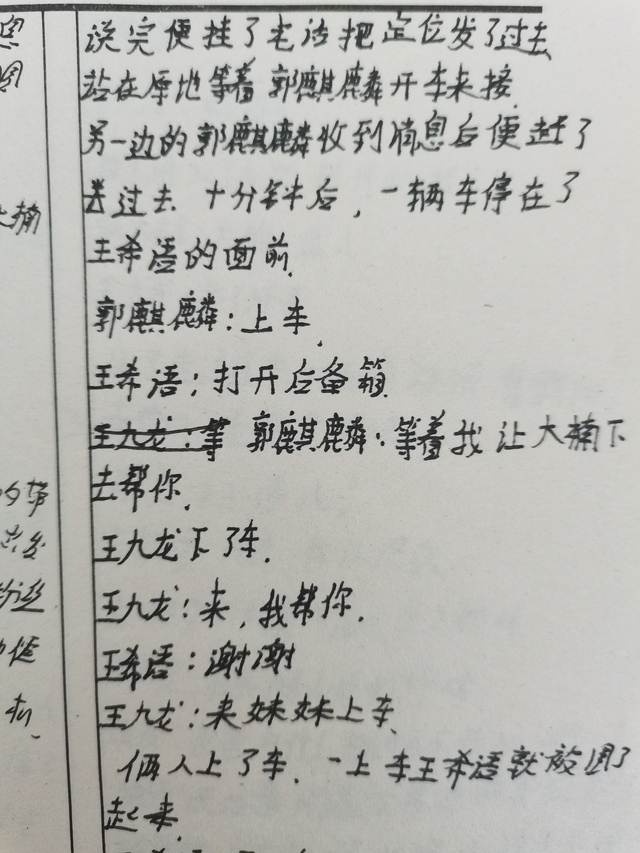 说完便挂了电话把定位发了过去
站在原地等着郭麒麟开车来接.
另一边的郭麒麟收到消息后便赶了
去过去 十分钟后，一辆车停在了
王希语的面前.
郭麒麟：上车.
王希语：打开后备箱.
王九龙：等 郭麒麟：等着我让大楠下
去帮你.
王九龙下了车.
王九龙：来，我帮你.
王希语：谢谢
王九龙：来妹妹上车.
俩人上了车.一上车王希语就放困了
起来.
大楠